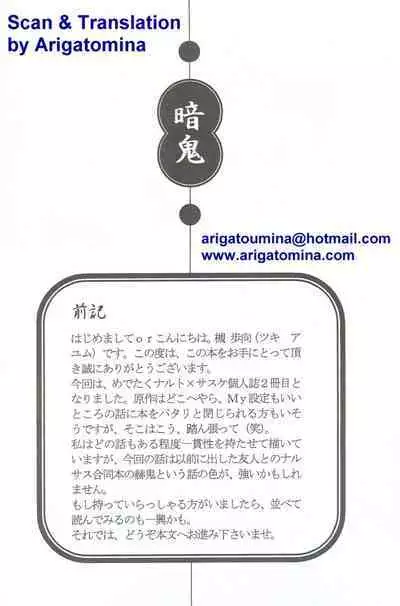 Scan & Translation
by Arigatomina
暗鬼
arigatoumina@hotmail.com
www.arigatomina.com
前記
はじめましてorこんにちは。槻 歩向(ツキ ア
ユム)です。この度は、この本をお手にとって頂
き誠にありがとうございます。
今回は、めでたくナルト×サスケ個人誌2冊目と
なりました。原作はどこへやら、My設定もいい
ところの話に本をパタリと閉じられる方もいそ
うですが、そこはこう、踏ん張って(笑)。
私はどの話もある程度一貫性を持たせて描いて
いますが、今回の話は以前に出した友人とのナル
サス合同本の赫鬼という話の色が、強いかもしれ
ません。
もし持っていらっしゃる方がいましたら、並べて
読んでみるのも一興かも。
それでは、どうぞ本文へお進み下さいませ。